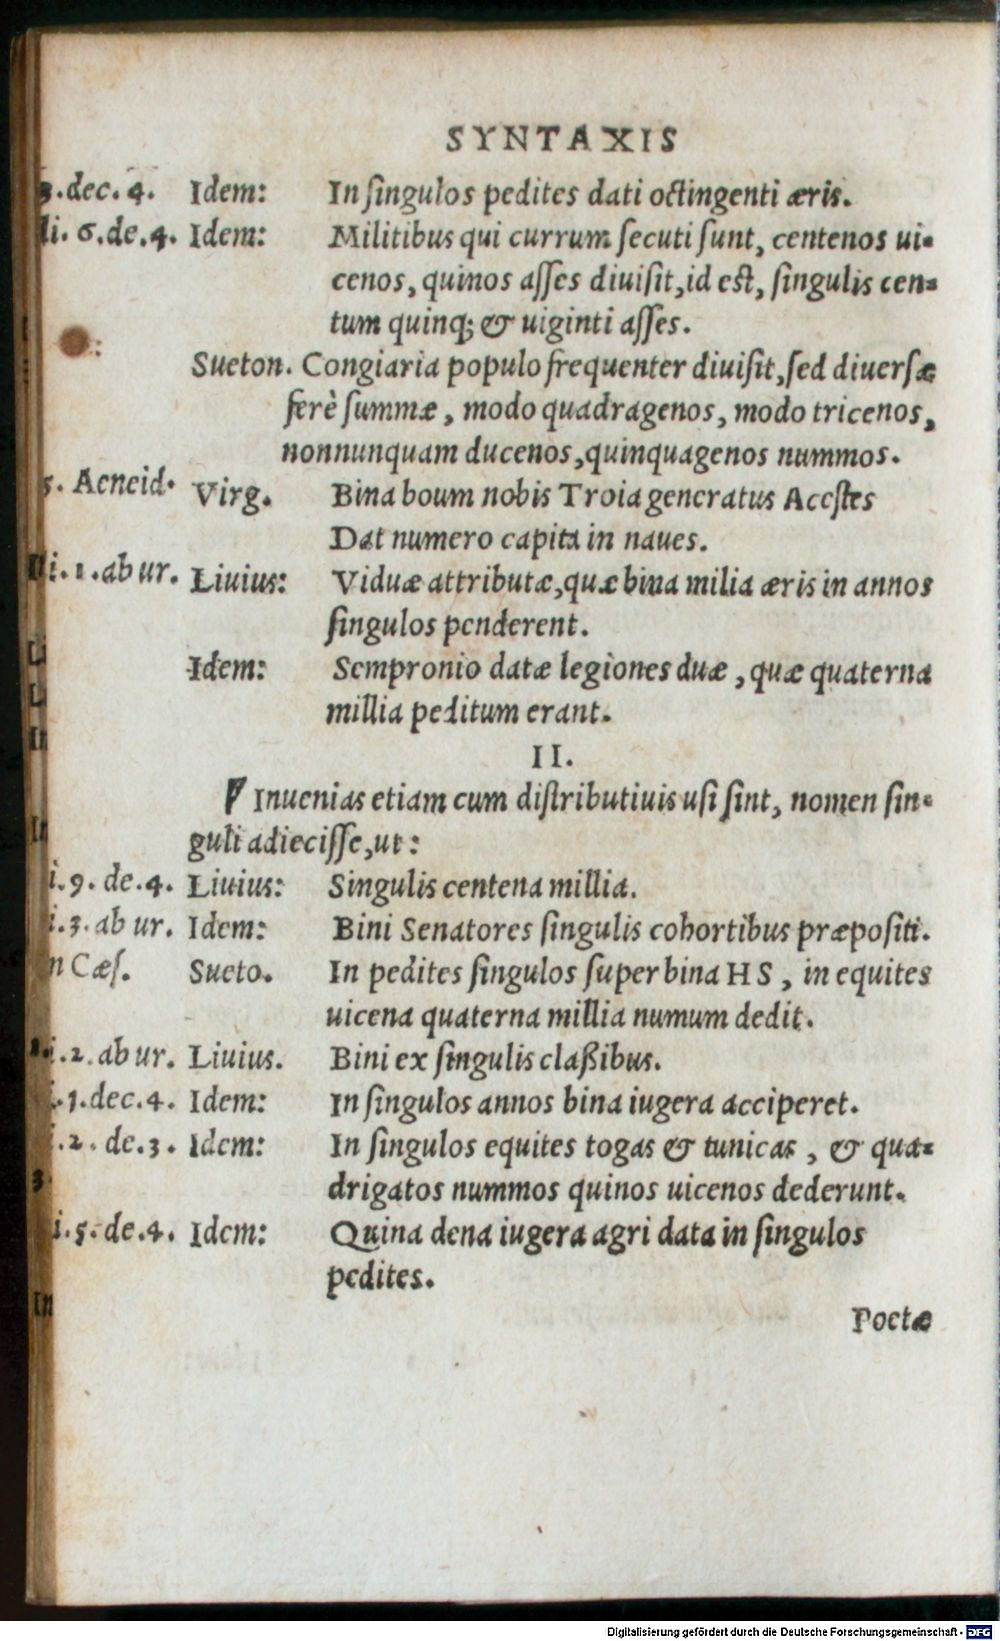 SYNTAXIS
3.dec.4. Idem: In ſingulos pedites dati octingenti æris.
li. 6.de.4. Idem: Militibus qui currum ſecuti ſunt, centenos ui-
cenos, quinos aſſes diuiſit, id est, ſingulis cen-
tum quinq; & uiginti aſſes.
Sueton. Congiaria populo frequenter diuiſit, ſed diuerſæ
ferè ſummæ, modo quadragenos, modo tricenos,
nonnunquam ducenos, quinquagenos nummos.
5. Aeneid. Virg. Bina boum nobis Troia generatus Aceſtes
Dat numero capita in naues.
li. 1. ab ur. Liuius: Viduæ attributæ, quæ bina milia æris in annos
ſingulos penderent.
Idem: Sempronio datæ legiones duæ, quæ quaterna
millia peditum erant.
II.
Inuenias etiam cum diſtributiuis uſi ſint, nomen ſin-
guli adieciſſe, ut:
i. 9. de.4. Liuius: Singulis centena millia.
i.3. ab ur. Idem: Bini Senatores ſingulis cohortibus præpoſiti.
n Cæſ. Sueto. In pedites ſingulos ſuper bina HS, in equites
uicena quaterna millia numum dedit.
i.2. ab ur. Liuius. Bini ex ſingulis claßibus.
.1.dec.4. Idem: In ſingulos annos bina iugera acciperet.
.2. de.3. Idem: In ſingulos equites togas & tunicas, & qua-
drigatos nummos quinos uicenos dederunt.
i.5.de.4. Idem: Quina dena iugera agri data in ſingulos
pedites.
Poetæ
Digitalisierung gefördert durch die Deutsche Forschungsgemeinschaft - DFG